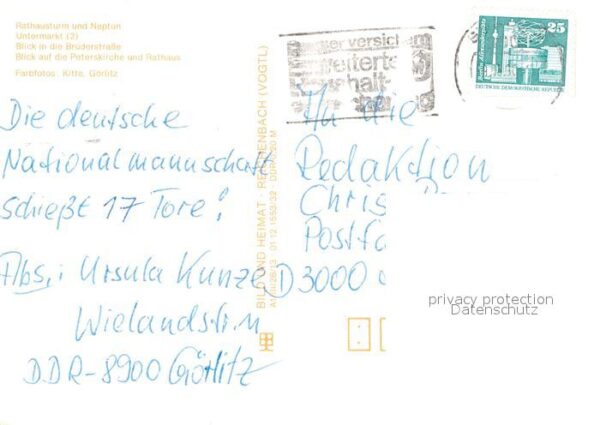 Rathausturm und Neptun
Untermarkt (2)
Blick in die Brüderstraße
Blick auf die Peterskirche und Rathaus
Farbfotos: Kitte, Görlitz
Die deutsche
Nationalmannschaft
schießt 17 Tore!
Abs.: Ursula Kunze
Wielandstr.
DDR-8900 Görlitz
BILD UND HEIMAT · REICHENBACH (VOGTL)
A1/III/26/13 01 12 1553/32 DDR 0,20 M
versichern
25
DEUTSCHE DEMOKRATISCHE REPUBLIK
An die
Redaktion
Chris
Postfa
D 3000
privacy protection
Datenschutz